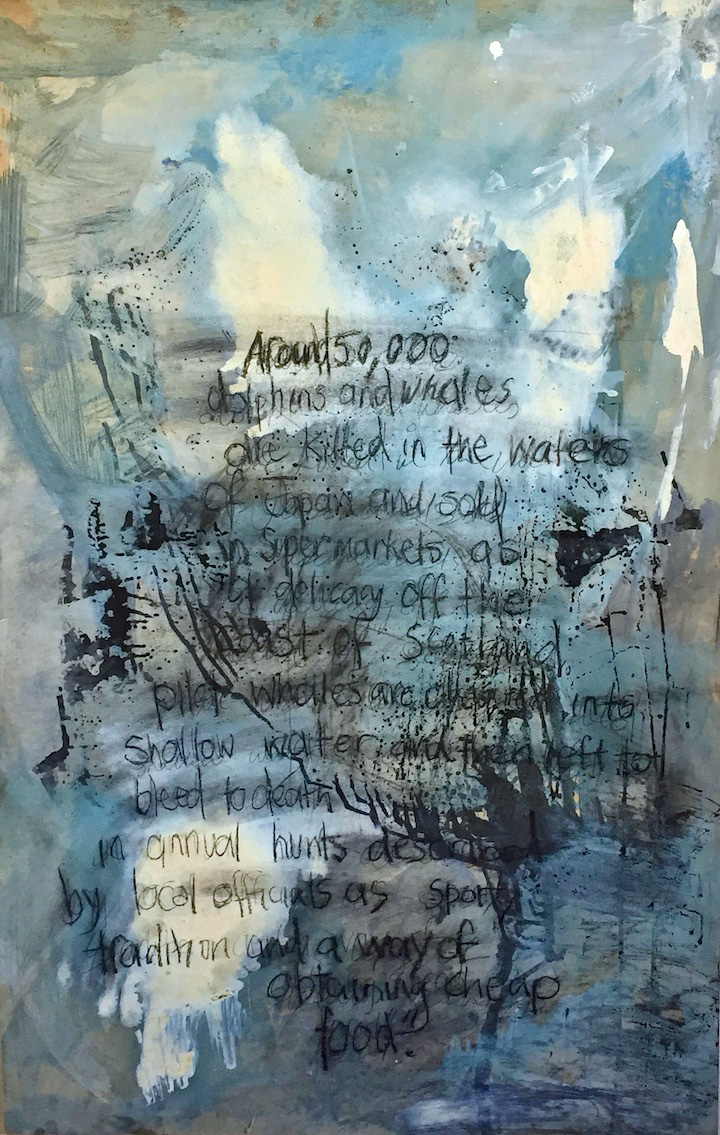 Around 50,000
dolphins and whales
are killed in the waters
of Japan and sold
in Supermarkets as
a delicacy off the
Coast of Scotland
pilot whales are into
Shallow water and then left to
bleed to death
in annual hunts described
by local officials as sport
tradition and a way of
obtaining cheap
food".